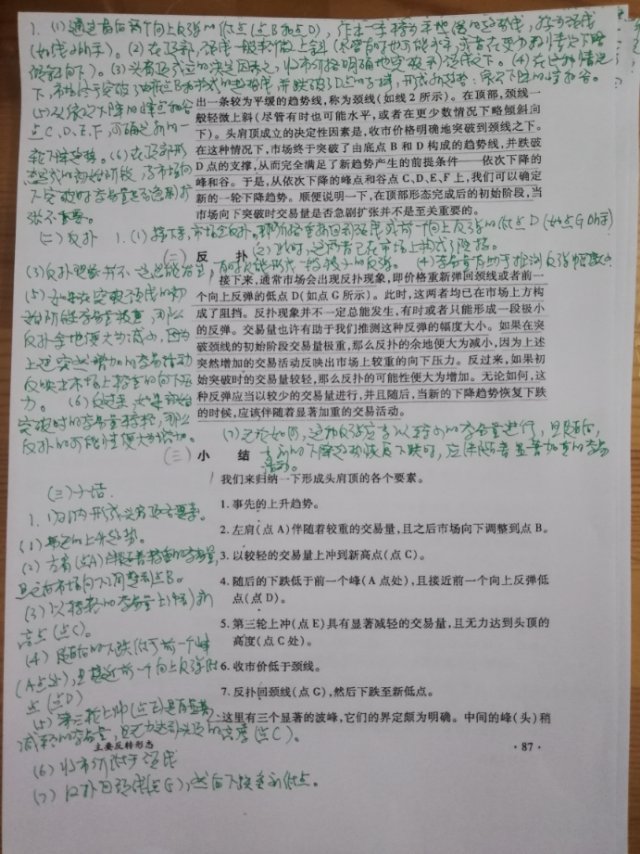 1. (1)通过前面两个向上反弹的低点(点B和点D),作出一条较为平缓的趋势线,称为颈线
(如线2所示)。(2)在顶部,颈线一般轻微上斜(尽管有时也可能水平,或者在更少数情况下略
倾斜向下)。(3)头肩顶成立的决定因素是,收市价格明确地突破到颈线之下。(4)在这种情况
下,市场终于突破了由底点B和D构成的趋势线,并跌破了D点的支撑,
(5)从依次下降的峰点和谷
点C、D、E、F,可确定新的一
轮下降趋势。(6)在顶部形
态完成的初始阶段,当市场向
下突破时交易量是否急剧扩
张不重要。
出一条较为平缓的趋势线,称为颈线(如线2所示)。在顶部,颈线一
般轻微上斜(尽管有时也可能水平,或者在更少数情况下略倾斜向
下)。头肩顶成立的决定性因素是,收市价格明确地突破到颈线之下。
在这种情况下,市场终于突破了由底点B和D构成的趋势线,并跌破
D点的支撑,从而完全满足了新趋势产生的前提条件——依次下降的
峰和谷。于是,从依次下降的峰点和谷点C、D、E、F上,我们可以确定
新的一轮下降趋势。顺便说明一下,在顶部形态完成后的初始阶段,当
市场向下突破时交易量是否急剧扩张并不是至关重要的。
(二)反扑 1. (1)接下来,市场会反扑,即价格重新弹回颈线或前一个向上反弹的低点D(如点G所示)
(2)此时,这两者已在市场上构成了阻挡。
(二)反 扑
(3)反扑现象并不一定总能发生,有时只能形成一段极小的反弹。(4)交易量有助于推测反弹幅度大小
接下来,通常市场会出现反扑现象,即价格重新弹回颈线或者前一
个向上反弹的低点D(如点G所示)。此时,这两者均已在市场上方构
成了阻挡。反扑现象并不一定总能发生,有时或者只能形成一段极小
的反弹。交易量也许有助于我们推测这种反弹的幅度大小。如果在突
破颈线的初始阶段交易量极重,那么反扑的余地便大为减小,因为上述
突然增加的交易活动反映出市场上较重的向下压力。反过来,如果初
始突破时的交易量较轻,那么反扑的可能性便大为增加。无论如何,这
种反弹应当以较少的交易量进行,并且随后,当新的下降趋势恢复下跌
的时候,应该伴随着显著加重的交易活动。
(5)如果在突破颈线的初
始阶段交易量极重,那么
反扑余地便大为减小,因为
上述突然增加的交易活动
反映出市场上较重的向下压
力。(6)反过来,如果初始
突破时的交易量较轻,那么
反扑的可能性便大为增加。
(7)无论如何,这种反弹应当以较少的交易量进行,且随后,
当新的下降趋势恢复下跌时,应伴随着显著加重的交易
活动。
(三)小 结
我们来归纳一下形成头肩顶的各个要素。
1.事先的上升趋势。
2.左肩(点A)伴随着较重的交易量,且之后市场向下调整到点B。
3.以较轻的交易量上冲到新高点(点C)。
4.随后的下跌低于前一个峰(A点处),且接近前一个向上反弹低
点(点D)。
5.第三轮上冲(点E)具有显著减轻的交易量,且无力达到头顶的
高度(点C处)。
6.收市价低于颈线。
7.反扑回颈线(点G),然后下跌至新低点。
这里有三个显著的波峰,它们的界定颇为明确。中间的峰(头)稍
(三)小结.
1. 归纳形成头肩顶各要素。
(1)事先的上升趋势。
(2)左肩(点A)伴随着较重的交易量,
且之后市场向下调整到点B。
(3)以较轻的交易量上冲到新
高点(点C)。
(4)随后的下跌低于前一个峰
(A点处),且接近前一个向上反弹低
点(点D)
(5)第三轮上冲(点E)具有显著
减轻的交易量,且无力达到头顶的高度(点C)。
主要反转形态
·87·
(6)收市价低于颈线
(7)反扑回颈线(点G),然后下跌至新低点。